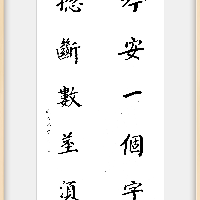 安一個字
斷數莖須